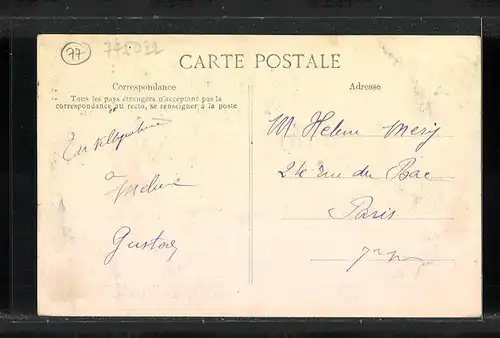 77
775022
CARTE POSTALE
Correspondance
Tous les pays étrangers n'acceptant pas la
correspondance au recto, se renseigner à la poste
Adresse
En villégiature
à Melun
Gustave
M Helen Mery
24 rue du Bac
Paris
7e